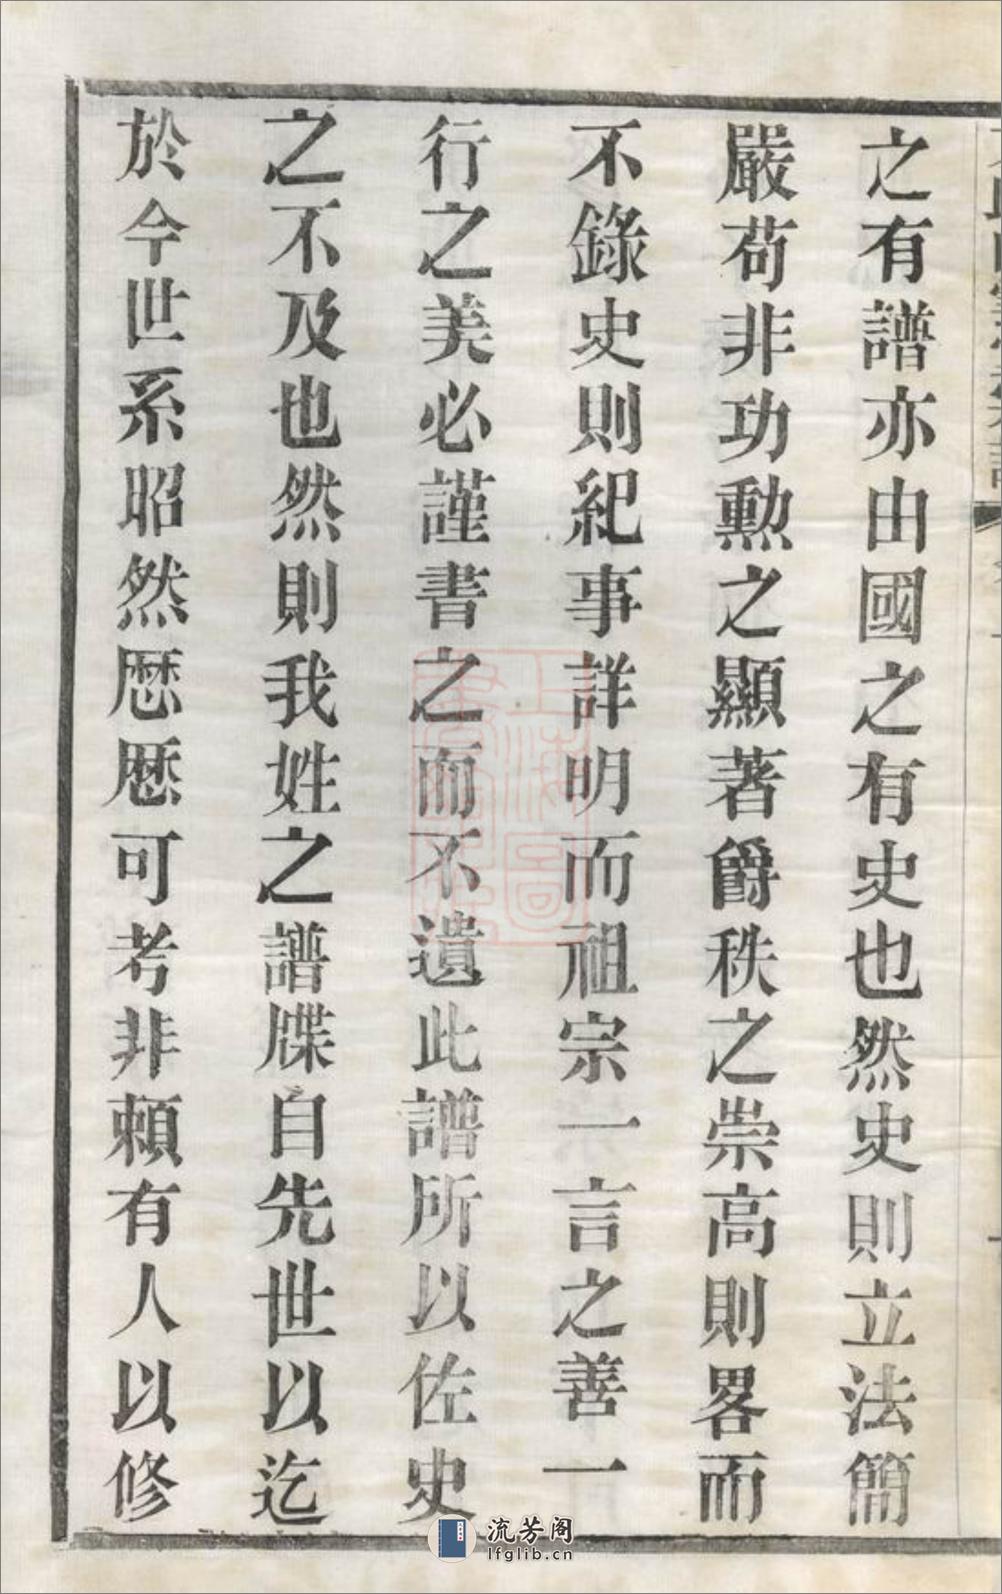 之有譜亦由國之有史也然史則立法簡
嚴苟非功勲之顯著爵秩之崇高則畧而
不錄史則紀事詳明而祖宗一言之善一
行之美必謹書之而不遺此譜所以佐史
之不及也然則我姓之譜牒自先世以迄
於今世系昭然厯厯可考非賴有人以修
上海圖書館藏
流芳阁
lfglib.cn